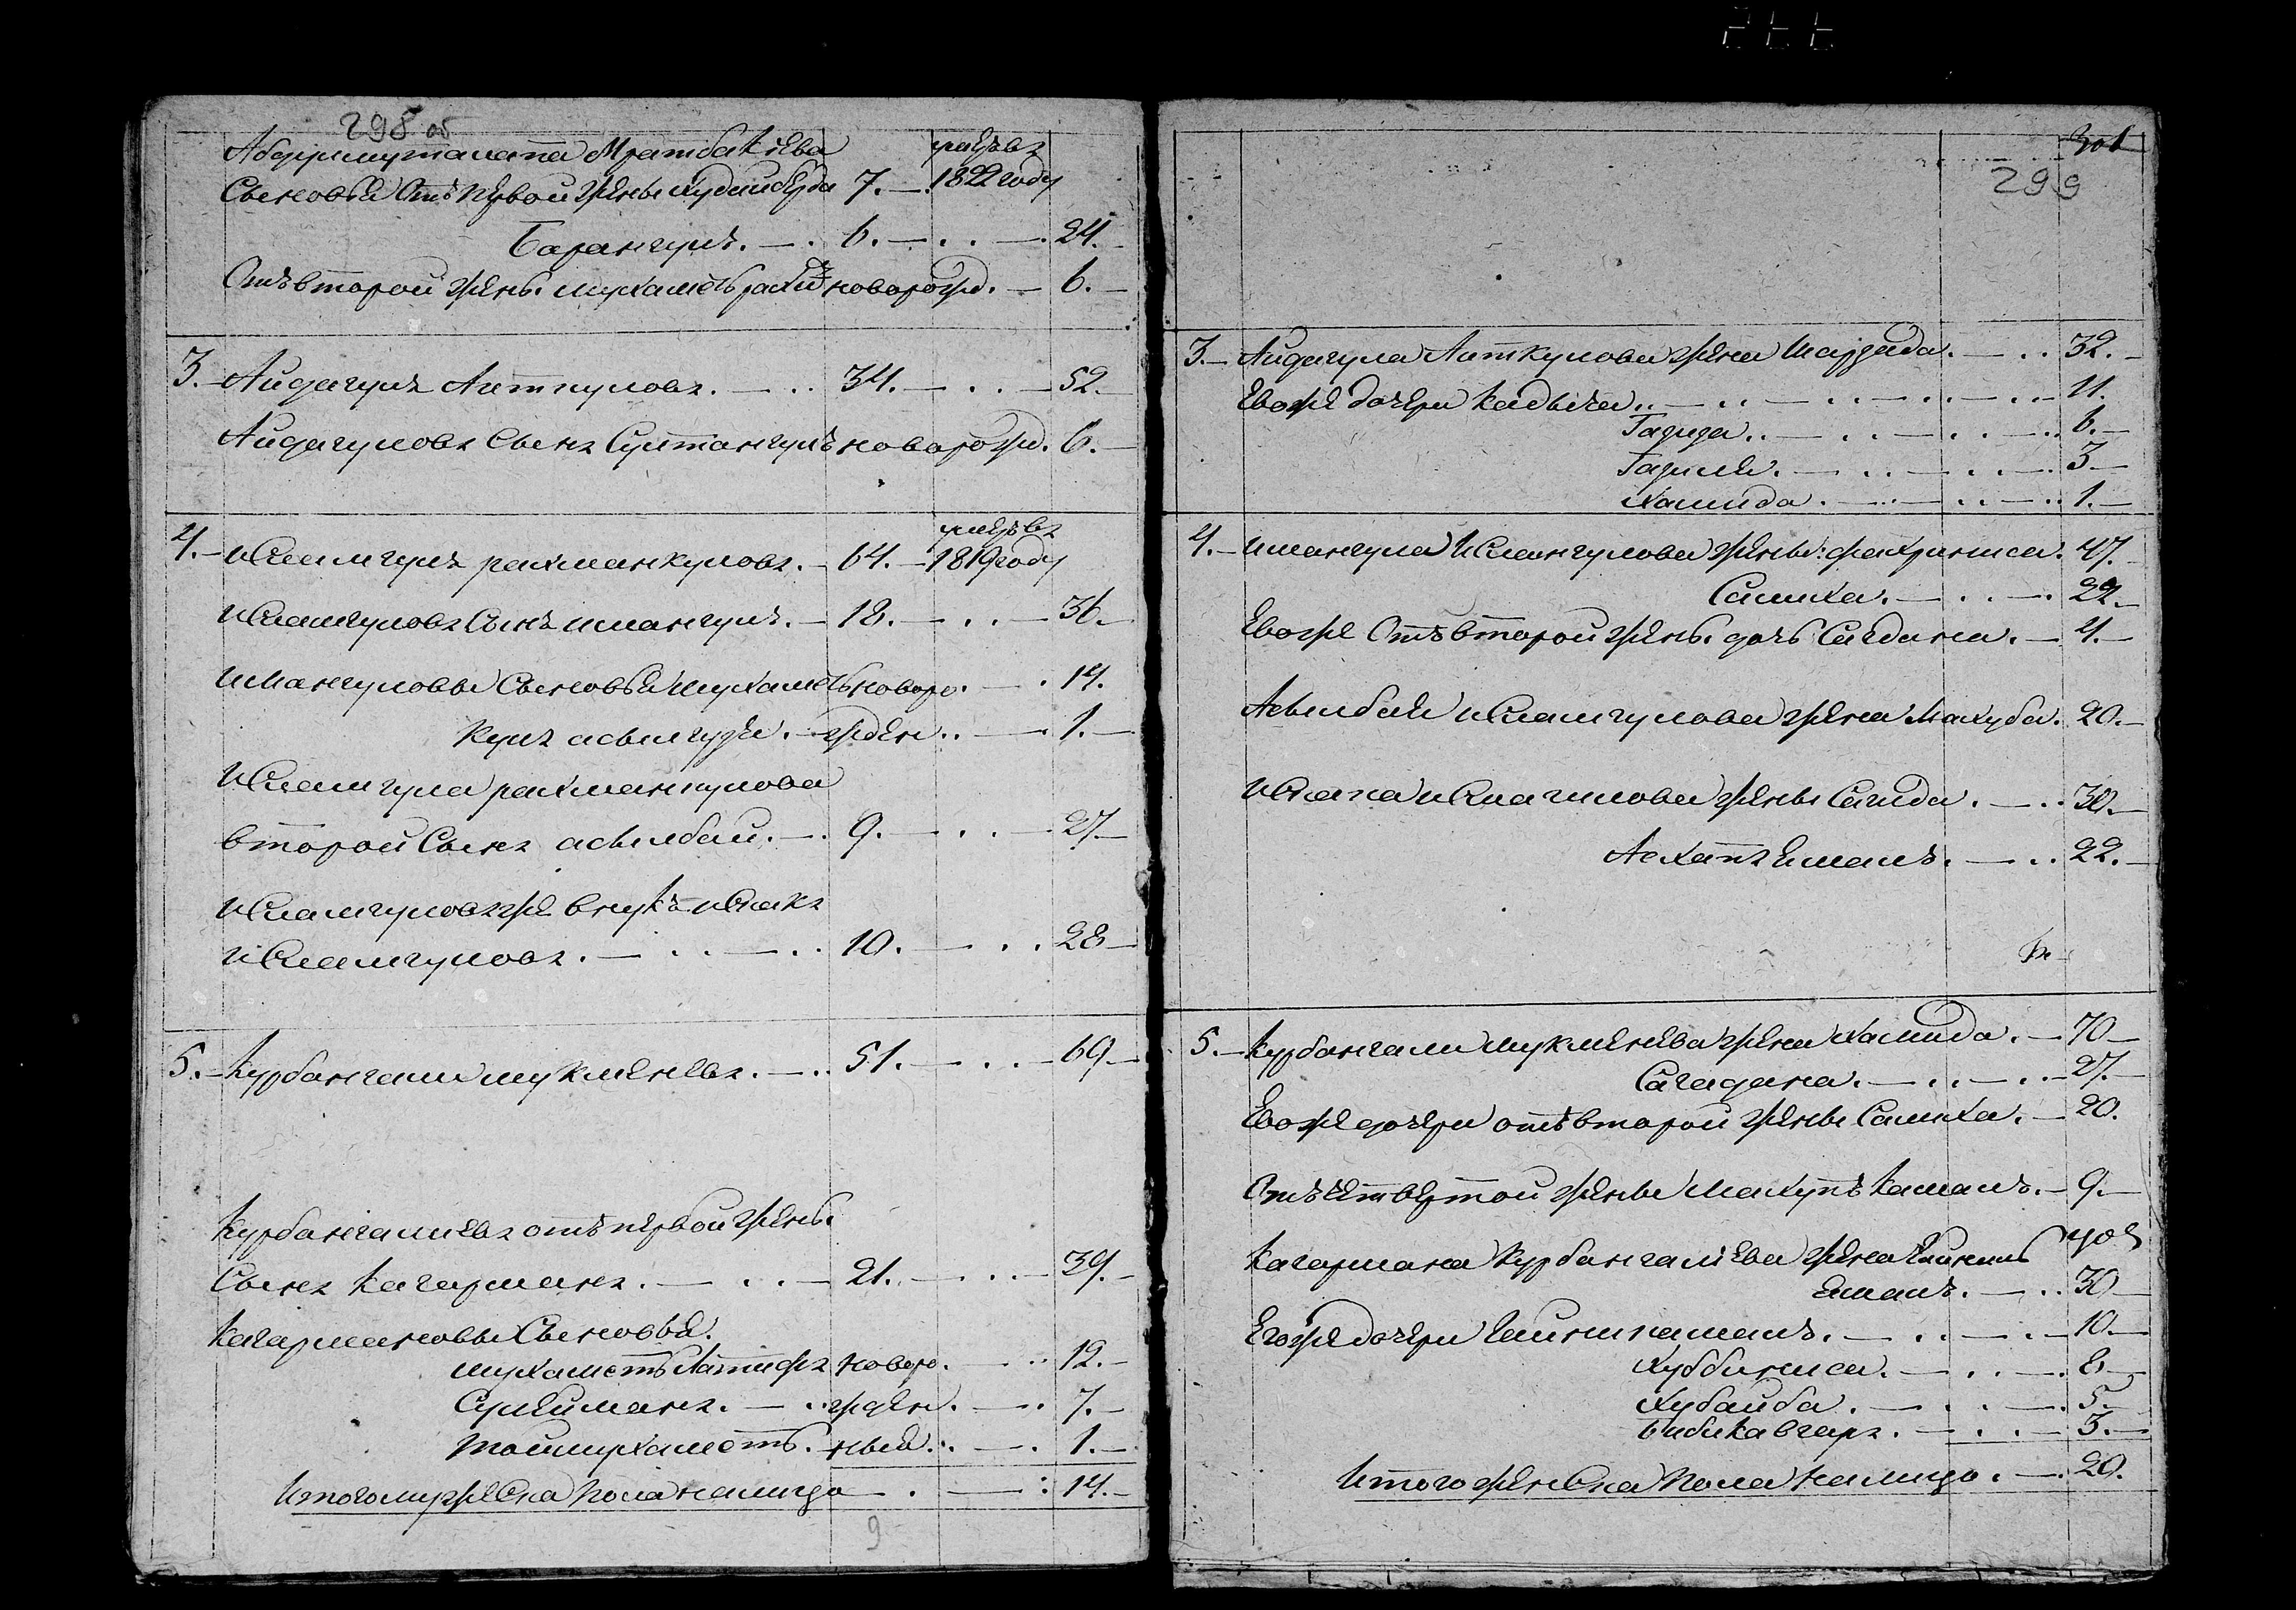 298 об
Абдулмуталапа Мратбакиева умеръ въ
Сыновья Отъ первой жены Худайберда 7. — 1822 году
Барангулъ. — . 6. — . . — 24. —
Отъ второй жены Мухаметьрахи новорожд. — 6. —
3. — Айдагулъ Аиткуловъ. — . . 34. — . . — 52. —
Айдагуловъ Сынъ Султангулъ новорожд. 6. —
умеръ въ
4. — Исламгулъ рахманкуловъ. — 64. — 1819 году
Исламгуловъ Сынъ имангулъ. — 18. — . . — 36. —
Имангуловы Сыновья мухаметь новоро. — . 14.
Кулъ асылгужа. — жден. . — . 1. —
Исламгула рахманкулова
второй Сынъ асылбай. — . 9. — . . — 27. —
Исламгуловъ же внукъ исхакъ
Исламгуловъ. — . . — . . 10. — . . 28 —
5. — Курбангали мукменевъ. — . . 51. — . . — 69. —
Курбангалиевъ отъ первой жены
Сынъ Кагарманъ. — . . — 21. — . . — 39. —
Кагармановы Сыновья.
мухаметь Латифъ новоро. — . . 12. —
Сулейманъ. — . . жден. — . . 7. —
Тоймухаметь. — ныя. . — . 1. —
Итого мужеска пола налицо — . — : 14. —
9
301
299
3. — Айдагула Аиткулова жена Шарзада. — . . 32. —
Евоже дочери Кадыча. . — . . — . . — . . — 11.
Гадида. . — . . — . . — . . 6. —
Гадиля. — . . — . . — . . 3 —
Хамида. — . . — . . — . . 1. —
4. — Имангула Исламгулова жены: фахриниса. 47. —
Салиха. — . . — . 22. —
Евоже Отъ второй жены дочь Сагдана. — 4. —
Асылбая исламгулова жена Махуба. 20. —
Исхака исмагилова жены Сагида. — . . 30. —
Асхапъ Ямалъ. — . . 22. —
5. — Курбангали мукменева жена Хамида. — 70 —
Сагадана. — . . — . . — 27. —
Евоже дочери отъ второй жены Салиха. — 20.
Отъ четвертой жены Махупъ Камалъ. — 9. —
Кагармана Курбангалиева жена
Ямалъ. — . . 30 —
Егоже дочери Гайникамалъ. — . . — . . — 10. —
Хуббиниса. — . . — . 8 —
Хубайба. — . . — . 5. —
Бибикавгаръ. — . . — 3. —
Итого женска пола налицо. — . 20.